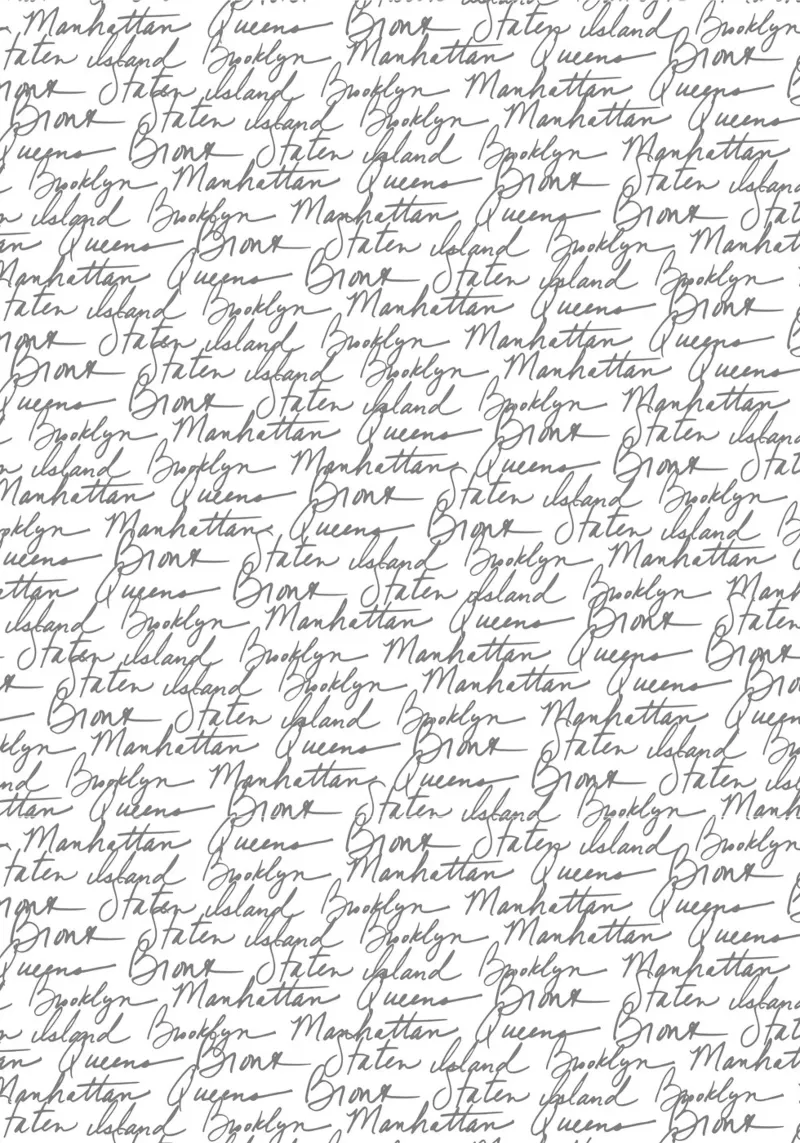 Manhattan Queens Bronx Staten Island Brooklyn
Staten Island Brooklyn Manhattan Queens Bronx
Bronx Staten Island Brooklyn Manhattan Queens
Bronx Staten Island Brooklyn Manhattan Queens
Queens Bronx Staten Island Brooklyn Manhattan
Brooklyn Manhattan Queens Bronx Staten Island
Island Brooklyn Manhattan Queens Bronx
Queens Bronx Staten Island Brooklyn Manhattan
Manhattan Queens Bronx Staten Island Brooklyn
Staten Island Brooklyn Manhattan Queens Bronx
Bronx Staten Island Brooklyn Manhattan Queens
Bronx Staten Island Brooklyn Manhattan Queens
Queens Bronx Staten Island Brooklyn Manhattan
Brooklyn Manhattan Queens Bronx Staten Island
Island Brooklyn Manhattan Queens Bronx
Manhattan Queens Bronx Staten Island Brooklyn
Manhattan Queens Bronx Staten Island
Queens Bronx Staten Island Brooklyn Manhattan
Queens Bronx Staten Island Brooklyn
Island Brooklyn Manhattan Queens Bronx Staten
Staten Island Brooklyn Manhattan Queens Bronx
Staten Island Brooklyn Manhattan Queens
Bronx Staten Island Brooklyn Manhattan Queens
Manhattan Queens Bronx Staten Island
Brooklyn Manhattan Queens Bronx Staten Island
Queens Bronx Staten Island Brooklyn
Manhattan Queens Bronx Staten Island Brooklyn
Staten Island Brooklyn Manhattan Queens Bronx
Bronx Staten Island Brooklyn Manhattan Queens
Bronx Staten Island Brooklyn Manhattan Queens
Queens Bronx Staten Island Brooklyn Manhattan
Brooklyn Manhattan Queens Bronx Staten Island
Island Brooklyn Manhattan Queens Bronx
Queens Bronx Staten Island Brooklyn Manhattan
Manhattan Queens Bronx Staten Island Brooklyn
Staten Island Brooklyn Manhattan Queens Bronx